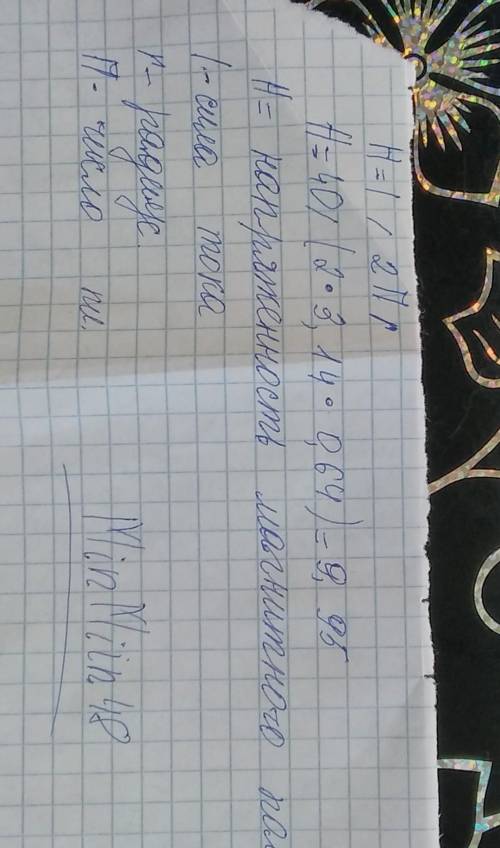 H = I / 2Пr
H = 40 / (2 • 3,14 • 0,64) = 9,95
H = напряженность магнитного пол
I - сила тока
r - радиус.
П - число пи.
MinMin48